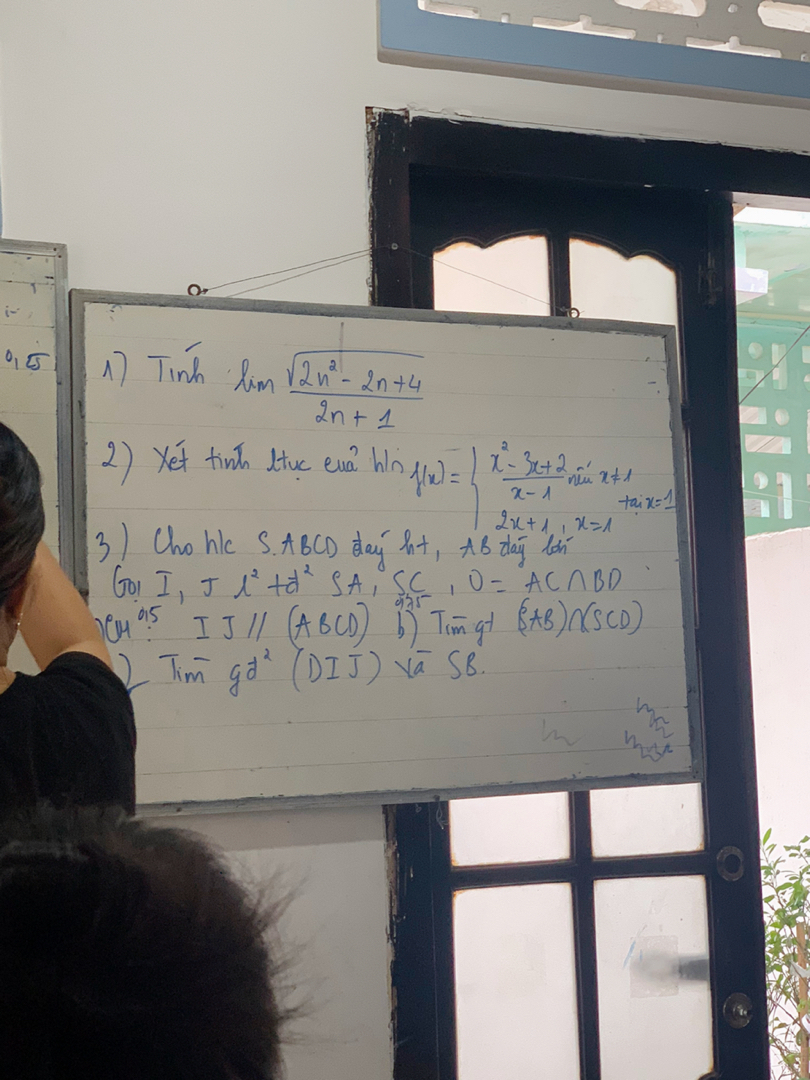 0,25
1) Tính lim √2n² - 2n+4
2n + 1
2) Xét tính ltục của h/s f(x) = { x² - 3x + 2 nếu x ≠ 1
x - 1
2x + 1 , x = 1 tại x = 1
3) Cho h/c S.ABCD đáy ht, AB đáy lớn
Gọi I, J l² tđ² SA, SC , O = AC ∩ BD
CM 0,5 IJ // (ABCD) 0,75 b) Tìm gt (SAB) ∩ (SCD)
) Tìm gđ² (DIJ) và SB.